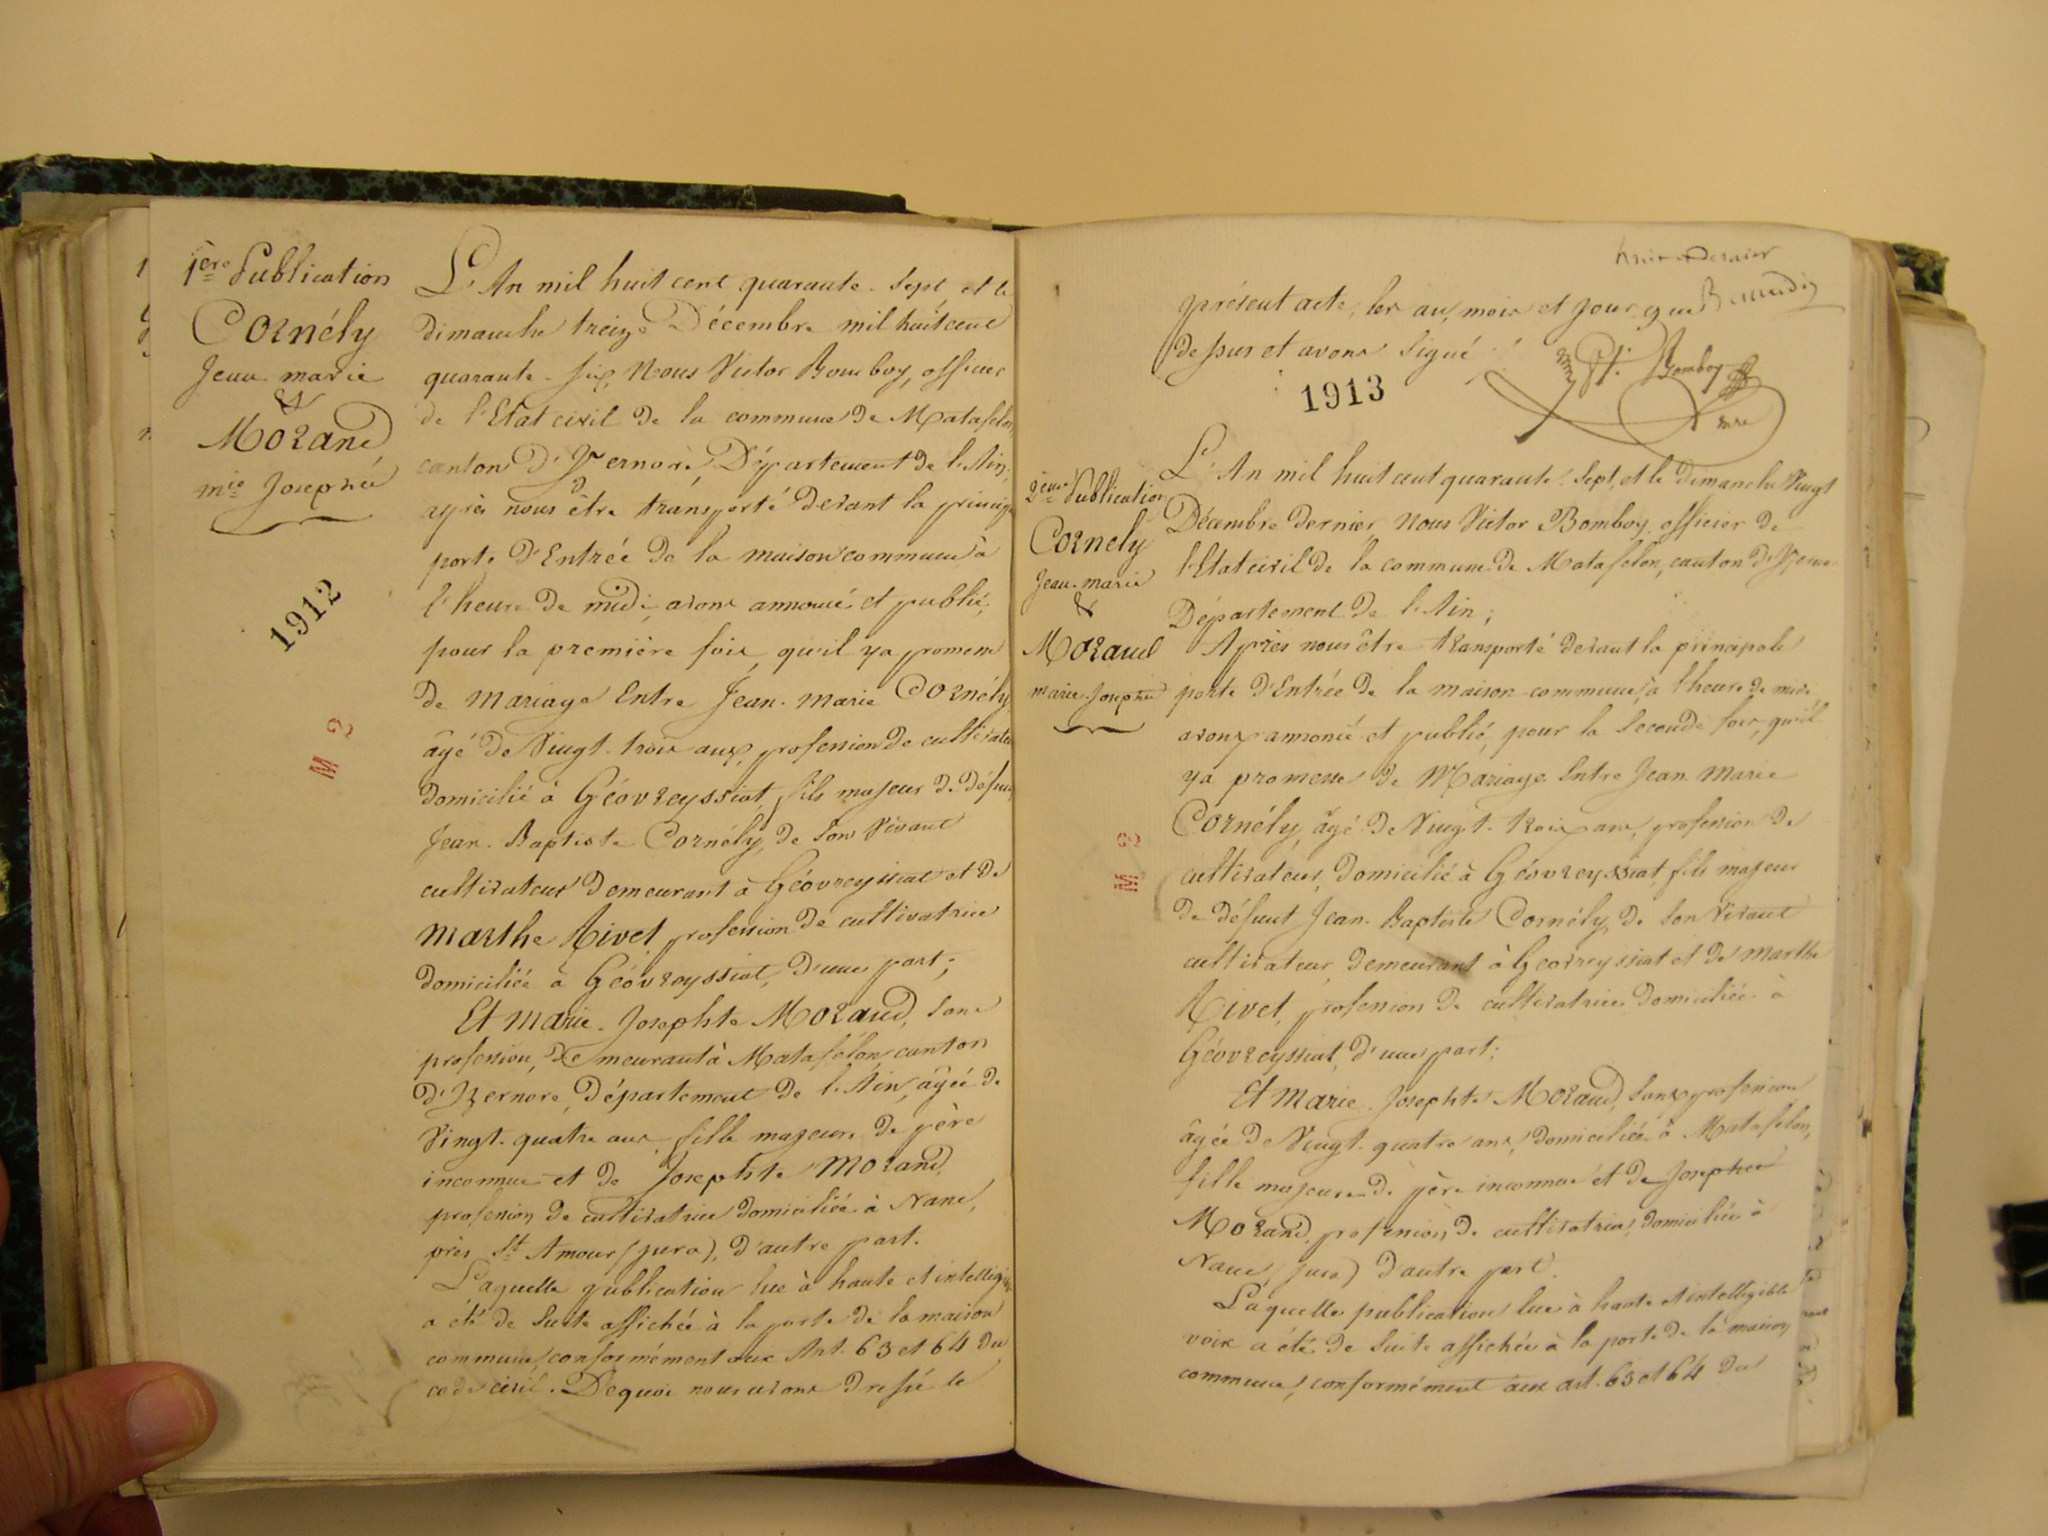 1ère Publication
Cornély
Jean marie
&
Morand
mie Josephte
1912
M 2
L'An mil huit cent quarante-Sept et le
dimanche treize Décembre mil huit cent
quarante-six, Nous Victor Bomboy, officier
de l'Etat civil de la commune de Matafelon,
canton d'Izernore, Département de l'Ain,
après nous être transporté devant la principe
porte d'Entrée de la maison commune à
l'heure de midi, avons annoncé et publié,
pour la première fois, qu'il y a promesse
de mariage Entre Jean-marie Cornély
âgé de Vingt-trois ans, profession de cultivateur
domicilié à Géovreyssiat, fils majeur de défunt
Jean-Baptiste Cornély, de Son Vivant
cultivateur demeurant à Géovreyssiat et de
marthe Rivet, profession de cultivatrice
domiciliée à Géovreyssiat, d'une part;
Et marie-Josephte Morand, Sans
profession, demeurant à Matafelon, canton
d'Izernore, Département de l'Ain, âgée de
Vingt-quatre ans, fille majeure de père
inconnue et de Josephte Morand,
profession de cultivatrice domiciliée à Nanc,
près St Amour (jura), d'autre part.
Laquelle publication lue à haute et intelligible
a été de Suite affichée à la porte de la maison
commune, conformément aux Art. 63 et 64 du
code civil. De quoi nous avons dressé le
huit et dernier
présent acte, les an, mois et jour que
dessus et avons Signé
Bomboy
1913
2ème Publication
Cornely
Jean-marie
&
Moraud
marie-Josephte
M 2
L'An mil huit cent quarante-Sept, et le dimanche Vingt
Décembre dernier, Nous Victor Bomboy, officier de
l'Etat civil de la commune de Matafelon, canton d'Izernore
Département de l'Ain;
Après nous être transporté devant la principale
porte d'Entrée de la maison commune, à l'heure de midi
avons annoncé et publié, pour la Seconde fois, qu'il
y a promesse de Mariage Entre Jean Marie
Cornély, âgé de Vingt-trois ans, profession de
cultivateur, domicilié à Géovreyssiat, fils majeur
de défunt Jean-Baptiste Cornély, de Son Vivant
cultivateur demeurant à Geovreyssiat et de Marthe
Rivet, profession de cultivatrice domiciliée à
Géovreyssiat, d'une part;
Et Marie-Josephte Moraud, Sans profession
âgée de Vingt-quatre ans, domiciliée à Matafelon,
fille majeure de père inconnue et de Josephte
Morand, profession de cultivatrice, domiciliée à
Nanc, (jura) d'autre part.
Laquelle publication lue à haute et intelligible
voix a été de Suite affichée à la porte de la maison
commune, conformément aux art. 63 et 64 du